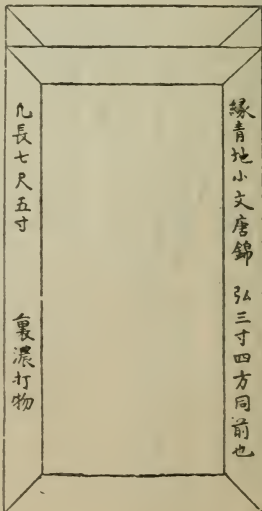 縁青地小文唐錦　弘三寸四方同前也
凡長七尺五寸　裏濃打物